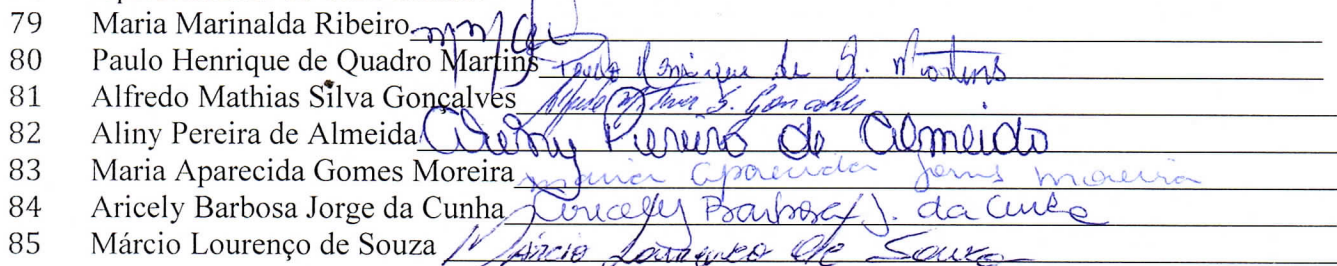 79 Maria Marinalda Ribeiro
80 Paulo Henrique de Quadro Martins Paulo Henrique de Q. Martins
81 Alfredo Mathias Silva Gonçalves S. Goncalves
82 Aliny Pereira de Almeida Aliny Pereira de Almeida
83 Maria Aparecida Gomes Moreira Maria Aparecida Gomes Moreira
84 Aricely Barbosa Jorge da Cunha Aricely Barbosa J. da Cunha
85 Márcio Lourenço de Souza Márcio Lourenço de Souza